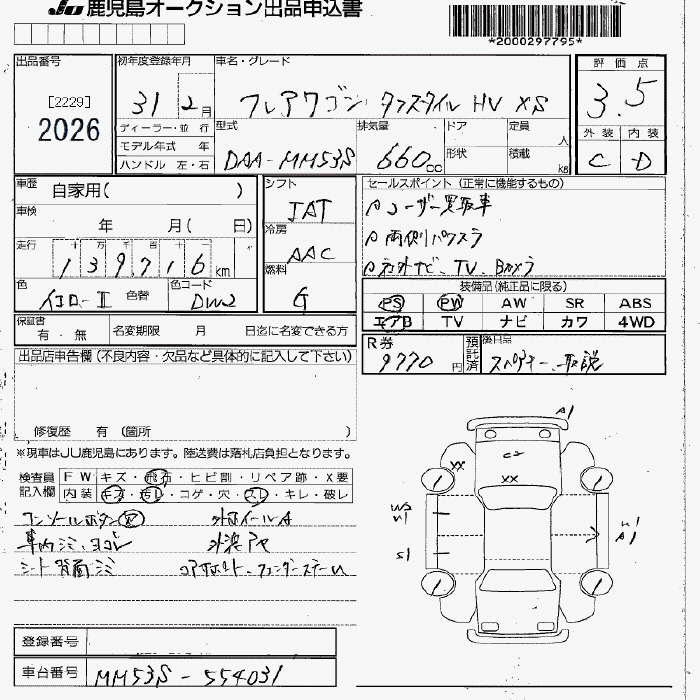 JU 鹿児島オークション出品申込書
*2000297795*
出品番号
[2229]
2026
初年度登録年月
31 2月
ディーラー・並 行
モデル年式 年
ハンドル 左・右
車名・グレード
フレアワゴン タフスタイル HV XS
型式
DAA-MM53S
排気量
660cc
ドア
形状
定員
人
積載
kg
評価点
3.5
外装 内装
C D
車歴
自家用( )
車検
年 月( 日)
走行
十 万 千 百 十 一
139716km
色
イエローII
色替
色コード
DW2
シフト
IAT
冷房
AAC
燃料
G
セールスポイント (正常に機能するもの)
ユーザー買取車
両側パワスラ
社外ナビ、TV、Bカメラ
装備品(純正品に限る)
PS PW AW SR ABS
エアB TV ナビ カワ 4WD
保証書
有・無
名変期限 月 日迄に名変できる方
R券
9770円
預託済
後日品
スペアキー、取説
出品店申告欄 (不良内容・欠品など具体的に記入して下さい)
修復歴 有 (箇所 )
※現車はJU鹿児島にあります。陸送費は落札店負担となります。
検査員記入欄
FW キズ・飛石・ヒビ割・リペア跡・X要
内装 キズ・汚レ・コゲ・穴・スレ・キレ・破レ
コンソールボタン欠
外ホイールA
車内シミ・ヨゴレ
外装アセ
シート背面シミ
コアサポート、フェンダーステーU
A1
C2
XX
XX
W2
U1
S1
U1
A1
登録番号
車台番号
MM53S-554031